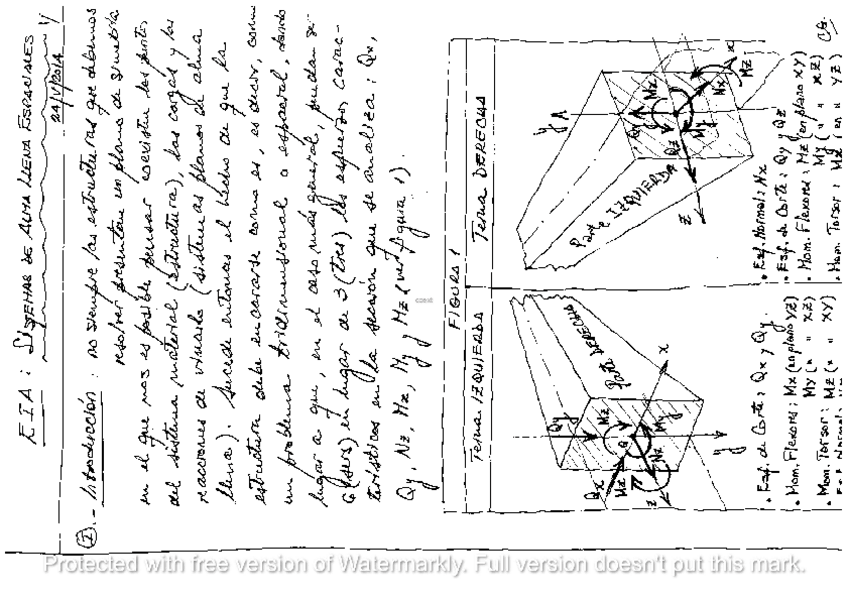 EIA: SISTEMAS DE ALMA LLENA ESPACIALES
24/V/2014 1/
I.- Introducción: no siempre las estructuras que debemos
resolver presentan un plano de simetría
en el que nos es posible pensar coexisten los puntos
del sistema material (estructura), las cargas y las
reacciones de vínculo (sistemas planos de alma
llena). Sucede entonces el hecho de que la
estructura debe encararse como es, es decir, como
un problema tridimensional o espacial, dando
lugar a que, en el caso más general, puedan se-
6 (seis) en lugar de 3 (tres) los esfuerzos carac-
terísticos en la sección que se analiza: Qx,
Qy, Nz, Mx, My y Mz (ver figura 1).
FIGURA 1
Terna IZQUIERDA
Parte DERECHA
Qy
Mz
Qx
Mx
My
Nz
x
y
z
• Esf. de Corte: Qx y Qy.
• Mom. Flexores: Mx (en plano YZ)
My (" " XZ)
• Mom. Torsor: Mz (" " XY)
Terna DERECHA
Parte IZQUIERDA
y
Qy
Mx
Qz
My
Nx
Mz
x
z
• Esf. Normal: Nx
• Esf. de Corte: Qy y Qz
• Mom. Flexores: Mz (en plano XY)
My (" " XZ)
• Mom. Torsor: Mx (en " YZ)
CG.
Protected with free version of Watermarkly. Full version doesn't put this mark.